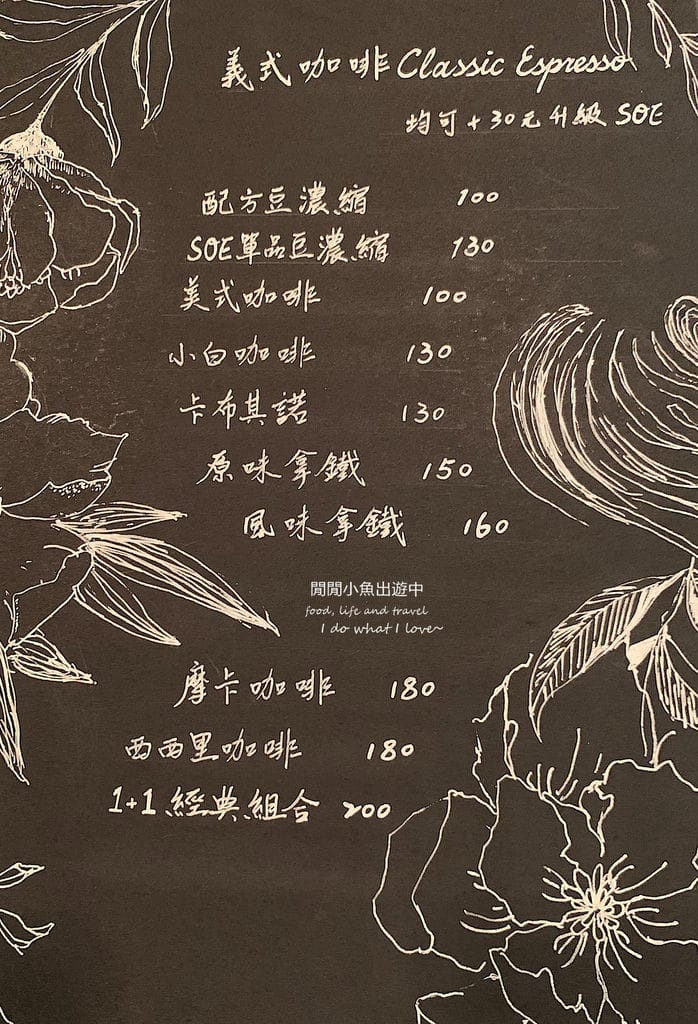 義式咖啡 Classic Espresso
均可+30元升級 SOE
配方豆濃縮 100
SOE單品豆濃縮 130
美式咖啡 100
小白咖啡 130
卡布其諾 130
原味拿鐵 150
風味拿鐵 160
閒閒小魚出遊中
food, life and travel
I do what I love~
摩卡咖啡 180
西西里咖啡 180
1+1 經典組合 200